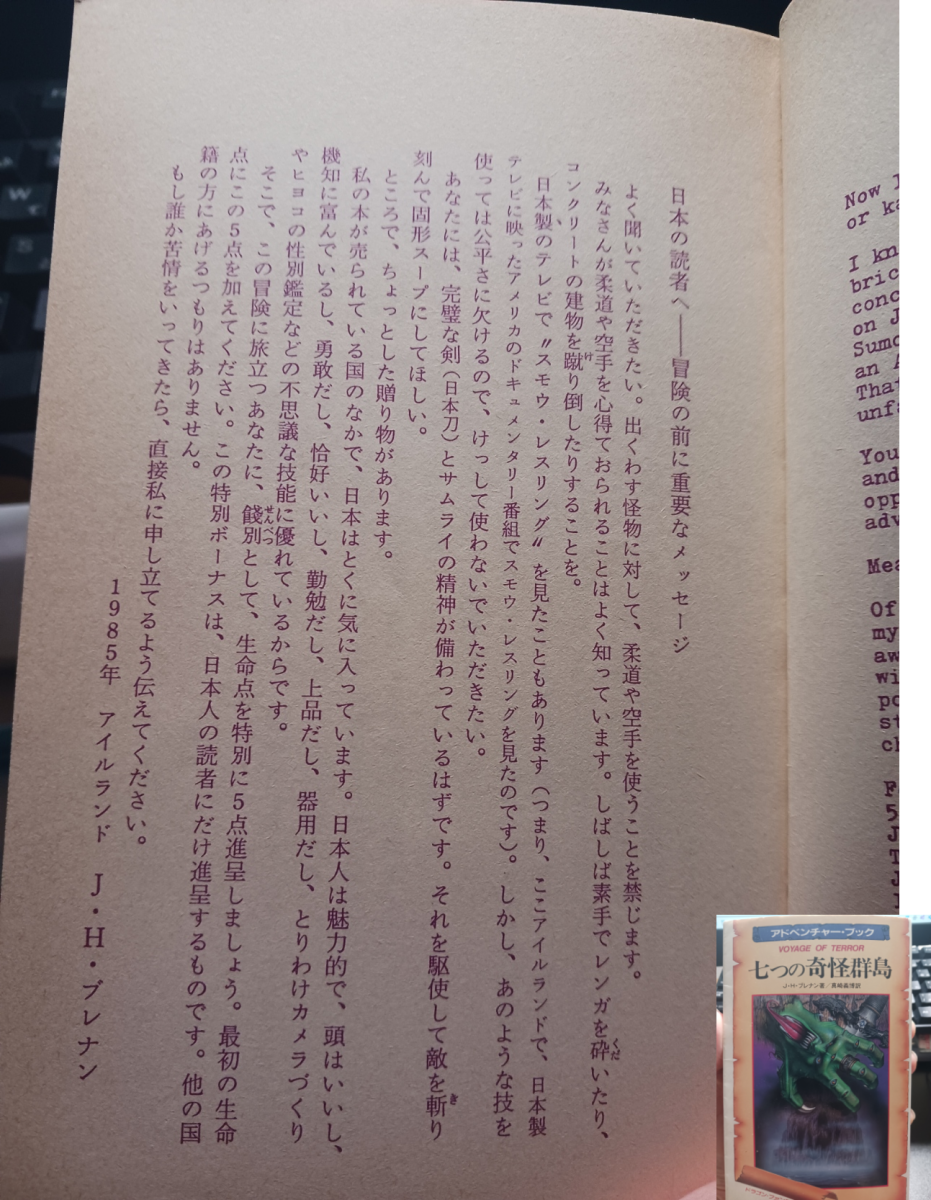 日本の読者へ――冒険の前に重要なメッセージ
よく聞いていただきたい。出くわす怪物に対して、柔道や空手を使うことを禁じます。
みなさんが柔道や空手を心得ておられることはよく知っています。しばしば素手でレンガを砕いたり、
コンクリートの建物を蹴り倒したりすることを。
日本製のテレビで〝スモウ・レスリング〟を見たこともあります（つまり、ここアイルランドで、日本製
テレビに映ったアメリカのドキュメンタリー番組でスモウ・レスリングを見たのです）。しかし、あのような技を
使っては公平さに欠けるので、けっして使わないでいただきたい。
あなたには、完璧な剣（日本刀）とサムライの精神が備わっているはずです。それを駆使して敵を斬り
刻んで固形スープにしてほしい。
ところで、ちょっとした贈り物があります。
私の本が売られている国のなかで、日本はとくに気に入っています。日本人は魅力的で、頭はいいし、
機知に富んでいるし、勇敢だし、恰好いいし、勤勉だし、上品だし、器用だし、とりわけカメラづくり
やヒヨコの性別鑑定などの不思議な技能に優れているからです。
そこで、この冒険に旅立つあなたに、餞別として、生命点を特別に5点進呈しましょう。最初の生命
点にこの5点を加えてください。この特別ボーナスは、日本人の読者にだけ進呈するものです。他の国
籍の方にあげるつもりはありません。
もし誰か苦情をいってきたら、直接私に申し立てるよう伝えてください。
1985年 アイルランド J・H・ブレナン
Now
or
I kn
bric
conc
on J
Sumo
an A
That
unf
You
and
opp
adv
Mea
Of
my
aw
wi
po
st
ch
F
5
J
T
J
アドベンチャー・ブック
VOYAGE OF TERROR
七つの奇怪群島
J・H・ブレナン著／真崎義博訳